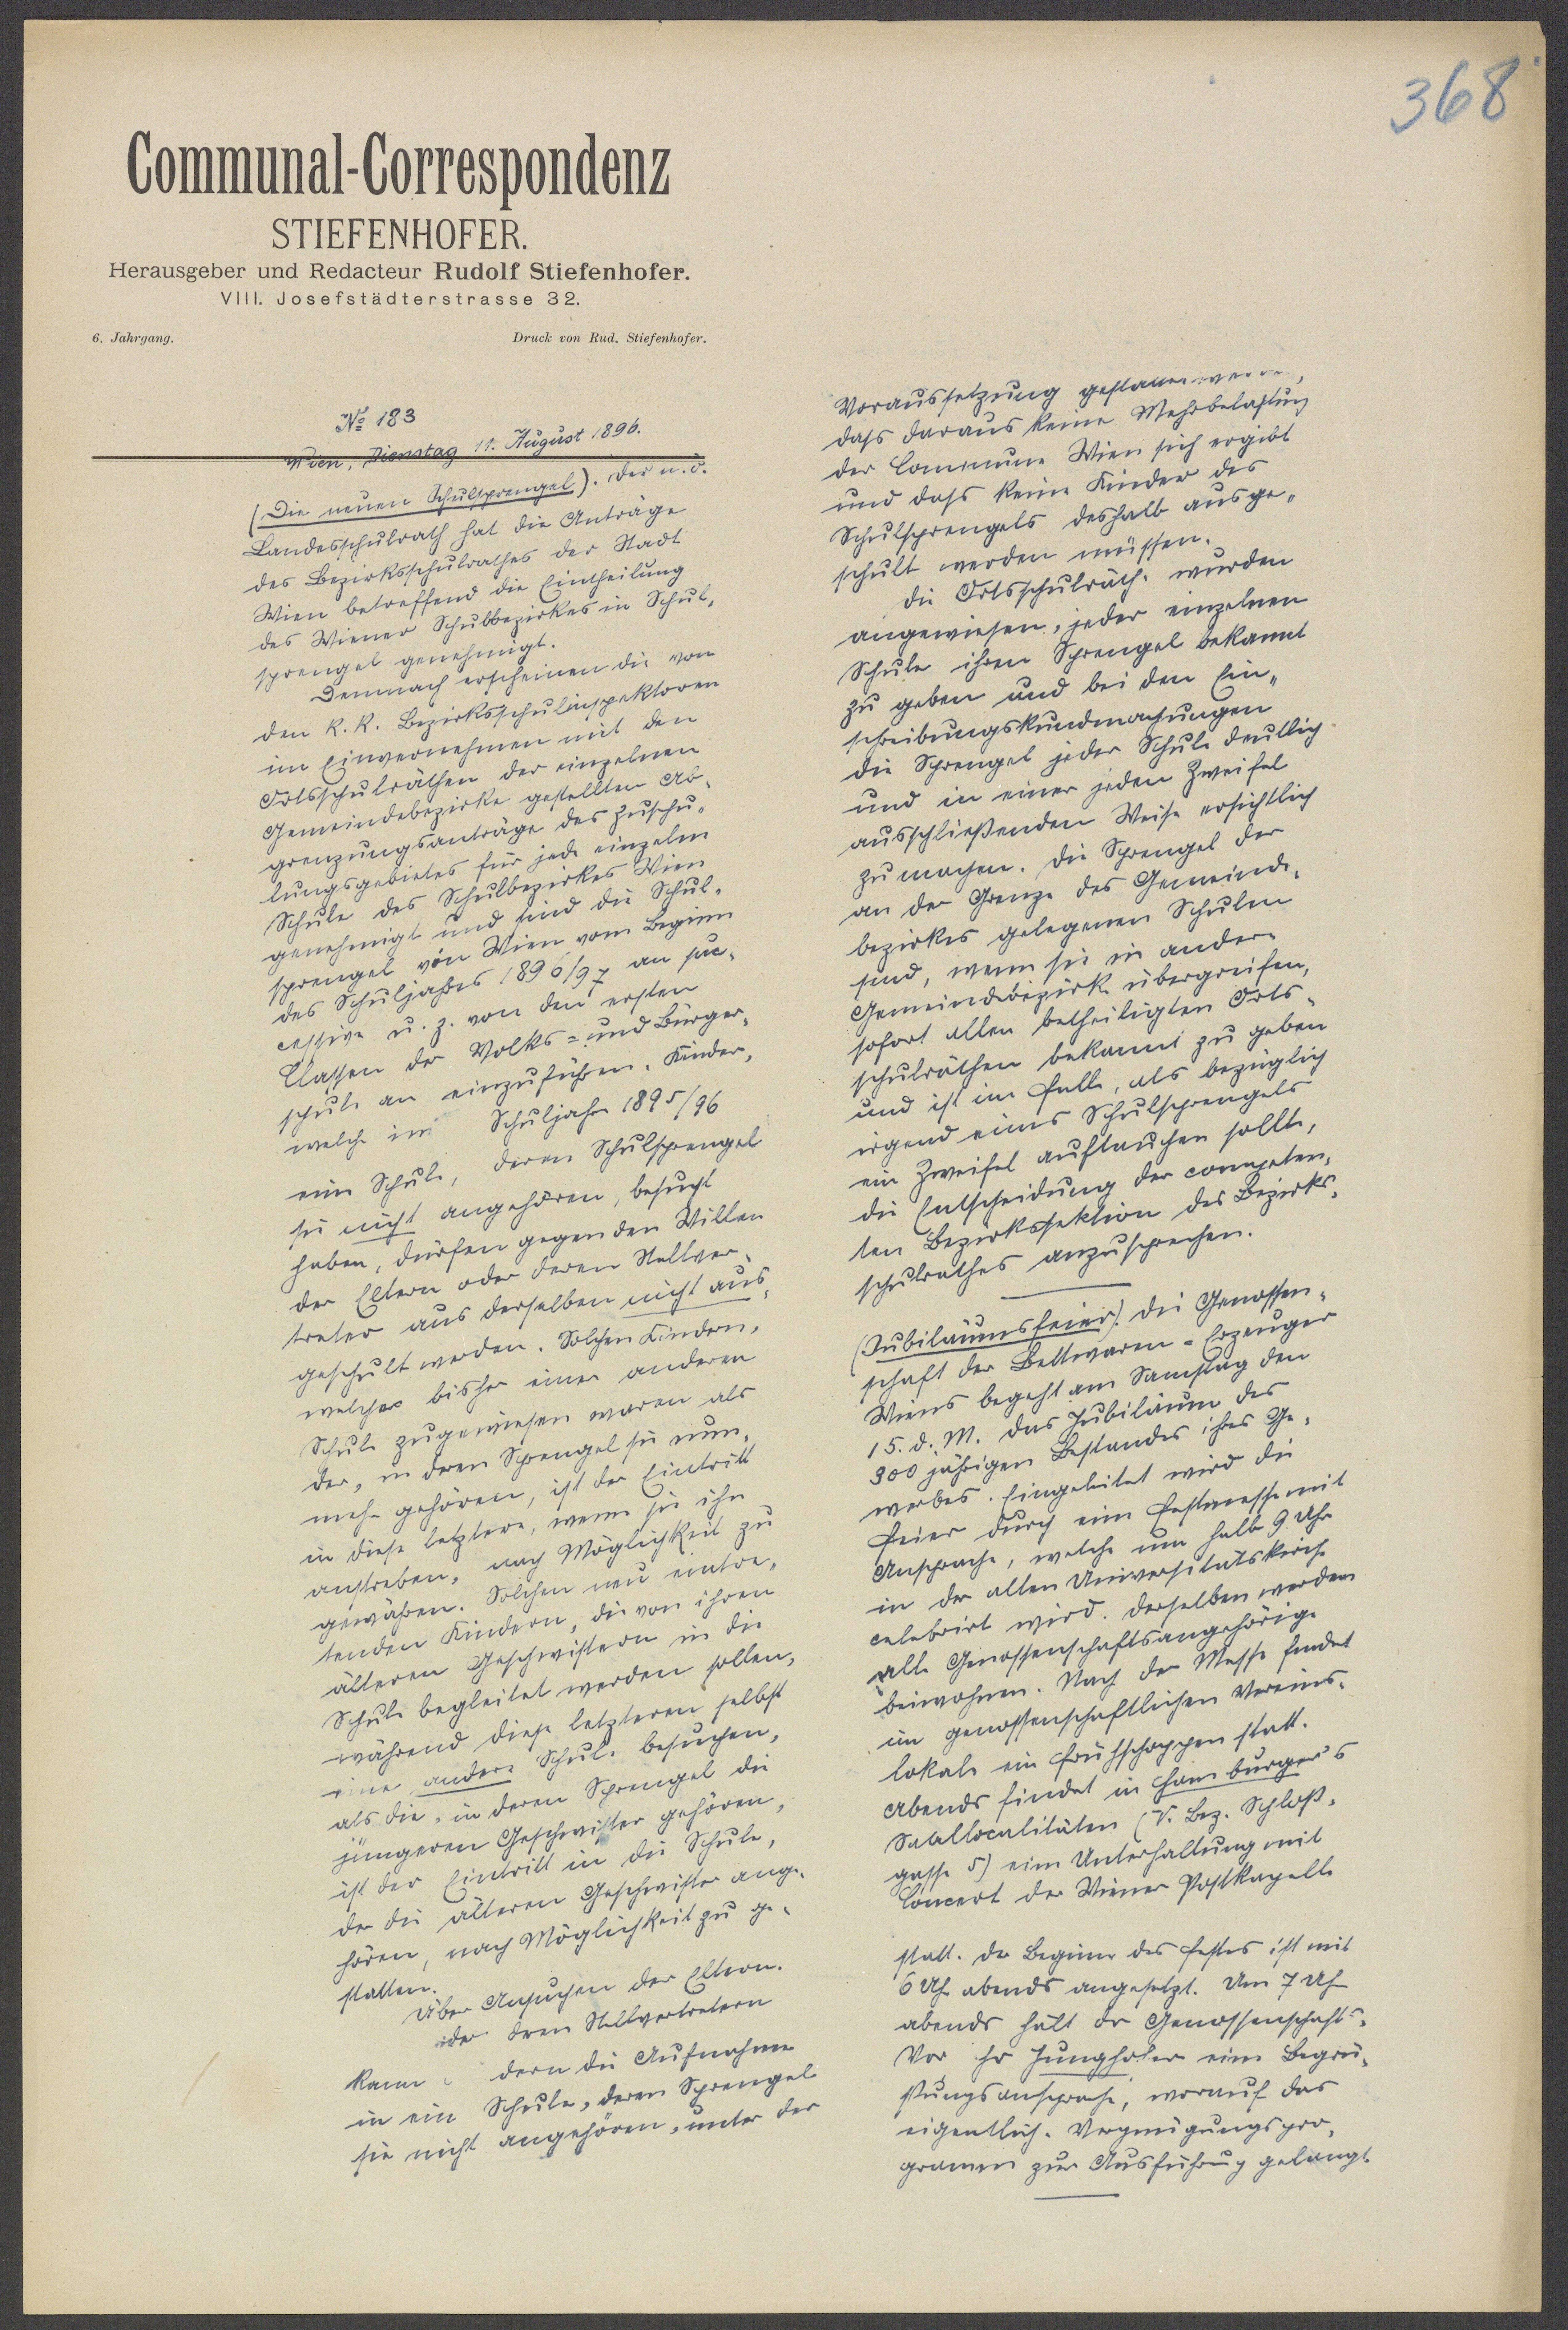 368
Communal-Correspondenz
STIEFENHOFER.
Herausgeber und Redacteur Rudolf Stiefenhofer.
VIII. Josefstädterstrasse 32.
6. Jahrgang. Druck von Rud. Stiefenhofer.
No 183
Wien, Dienstag 11. August 1896.
(Die neuen Schulsprengel). Der n. ö.
Landesschulrath hat die Anträge
des Bezirksschulrathes der Stadt
Wien betreffend die Eintheilung
des Wiener Schulbezirkes in Schul-
sprengel genehmigt.
Demnach erscheinen die von
den k. k. Bezirksschulinspektoren
im Einvernehmen mit den
Ortsschulräthen der einzelnen
Gemeindebezirke gestellten Ab-
grenzungsanträge des Zuschu-
lungsgebietes für jede einzelne
Schule des Schulbezirkes Wien
genehmigt und sind die Schul-
sprengel von Wien vom Beginn
des Schuljahres 1896/97 an suc-
cessive u. z. von den ersten
Classen der Volks- und Bürger-
schule an einzuführen. Kinder,
welche im Schuljahre 1895/96
eine Schule, deren Schulsprengel
sie nicht angehören, besucht
haben, dürfen gegen den Willen
der Eltern oder deren Stellver-
treter aus derselben nicht aus-
geschult werden. Solchen Kindern,
welche bisher einer anderen
Schule zugewiesen waren als
der, in deren Sprengel sie nun-
mehr gehören, ist der Eintritt
in diese letztere, wenn sie ihn
anstreben, nach Möglichkeit zu
gewähren. Solchen neu eintre-
tenden Kindern, die von ihren
älteren Geschwistern in die
Schule begleitet werden sollen,
während diese letzteren selbst
eine andere Schule besuchen,
als die, in deren Sprengel die
jüngeren Geschwister gehören,
ist der Eintritt in die Schule,
der die älteren Geschwister ange-
hören, nach Möglichkeit zu ge-
statten.
Über Ansuchen der Eltern
oder deren Stellvertretern
kann dern die Aufnahme
in ein Schule, deren Sprengel
sie nicht angehören, unter der
Voraussetzung gestattet werden,
dass daraus keine Mehrbelastung
der Commune Wien sich ergibt
und dass keine Kinder des
Schulsprengels deshalb ausge-
schult werden müssen.
Die Ortsschulräthe wurden
angewiesen, jeder einzelnen
Schule ihren Sprengel bekannt
zu geben und bei den Ein-
schreibungskundmachungen
die Sprengel jeder Schule deutlich
und in einer jeden Zweifel
ausschließenden Weise ersichtlich
zu machen. Die Sprengel der
an der Grenze des Gemeinde-
bezirkes gelegenen Schulen
sind, wenn sie in andere
Gemeindebezirke übergreifen,
sofort allen betheiligten Orts-
schulräthen bekannt zu geben
und ist im Falle, als bezüglich
irgend eines Schulsprengels
ein Zweifel auftauchen sollte,
die Entscheidung der competen-
ten Bezirkssektion des Bezirks-
schulrathes anzusprechen.
(Jubiläumsfeier). Die Genossen-
schaft der Bettwaren-Erzeuger
Wiens begeht am Samstag den
15. d. M. das Jubiläum des
300 jährigen Bestandes ihres Ge-
werbes. Eingeleitet wird die
Feier durch eine Festmesse mit
Ansprache, welche um halb 9 Uhr
in der alten Universitätskirche
celebrirt wird. Derselben werden
alle Genossenschaftsangehörige
beiwohnen. Nach der Messe findet
im genossenschaftlichen Vereins-
lokale ein Frühschoppen statt.
Abends findet in Hamburger's
Saallocalitäten (V. Bez. Schloß-
gasse 5) eine Unterhaltung mit
Concert der Wiener Postkapelle
statt. Der Beginn des Festes ist mit
6 Uhr abends angesetzt. Um 7 Uhr
abends hält der Genossenschafts-
Vor hr Junghofer eine Begrü-
ßungsansprache, worauf das
eigentliche Vergnügungspro-
gramm zur Ausführung gelangt